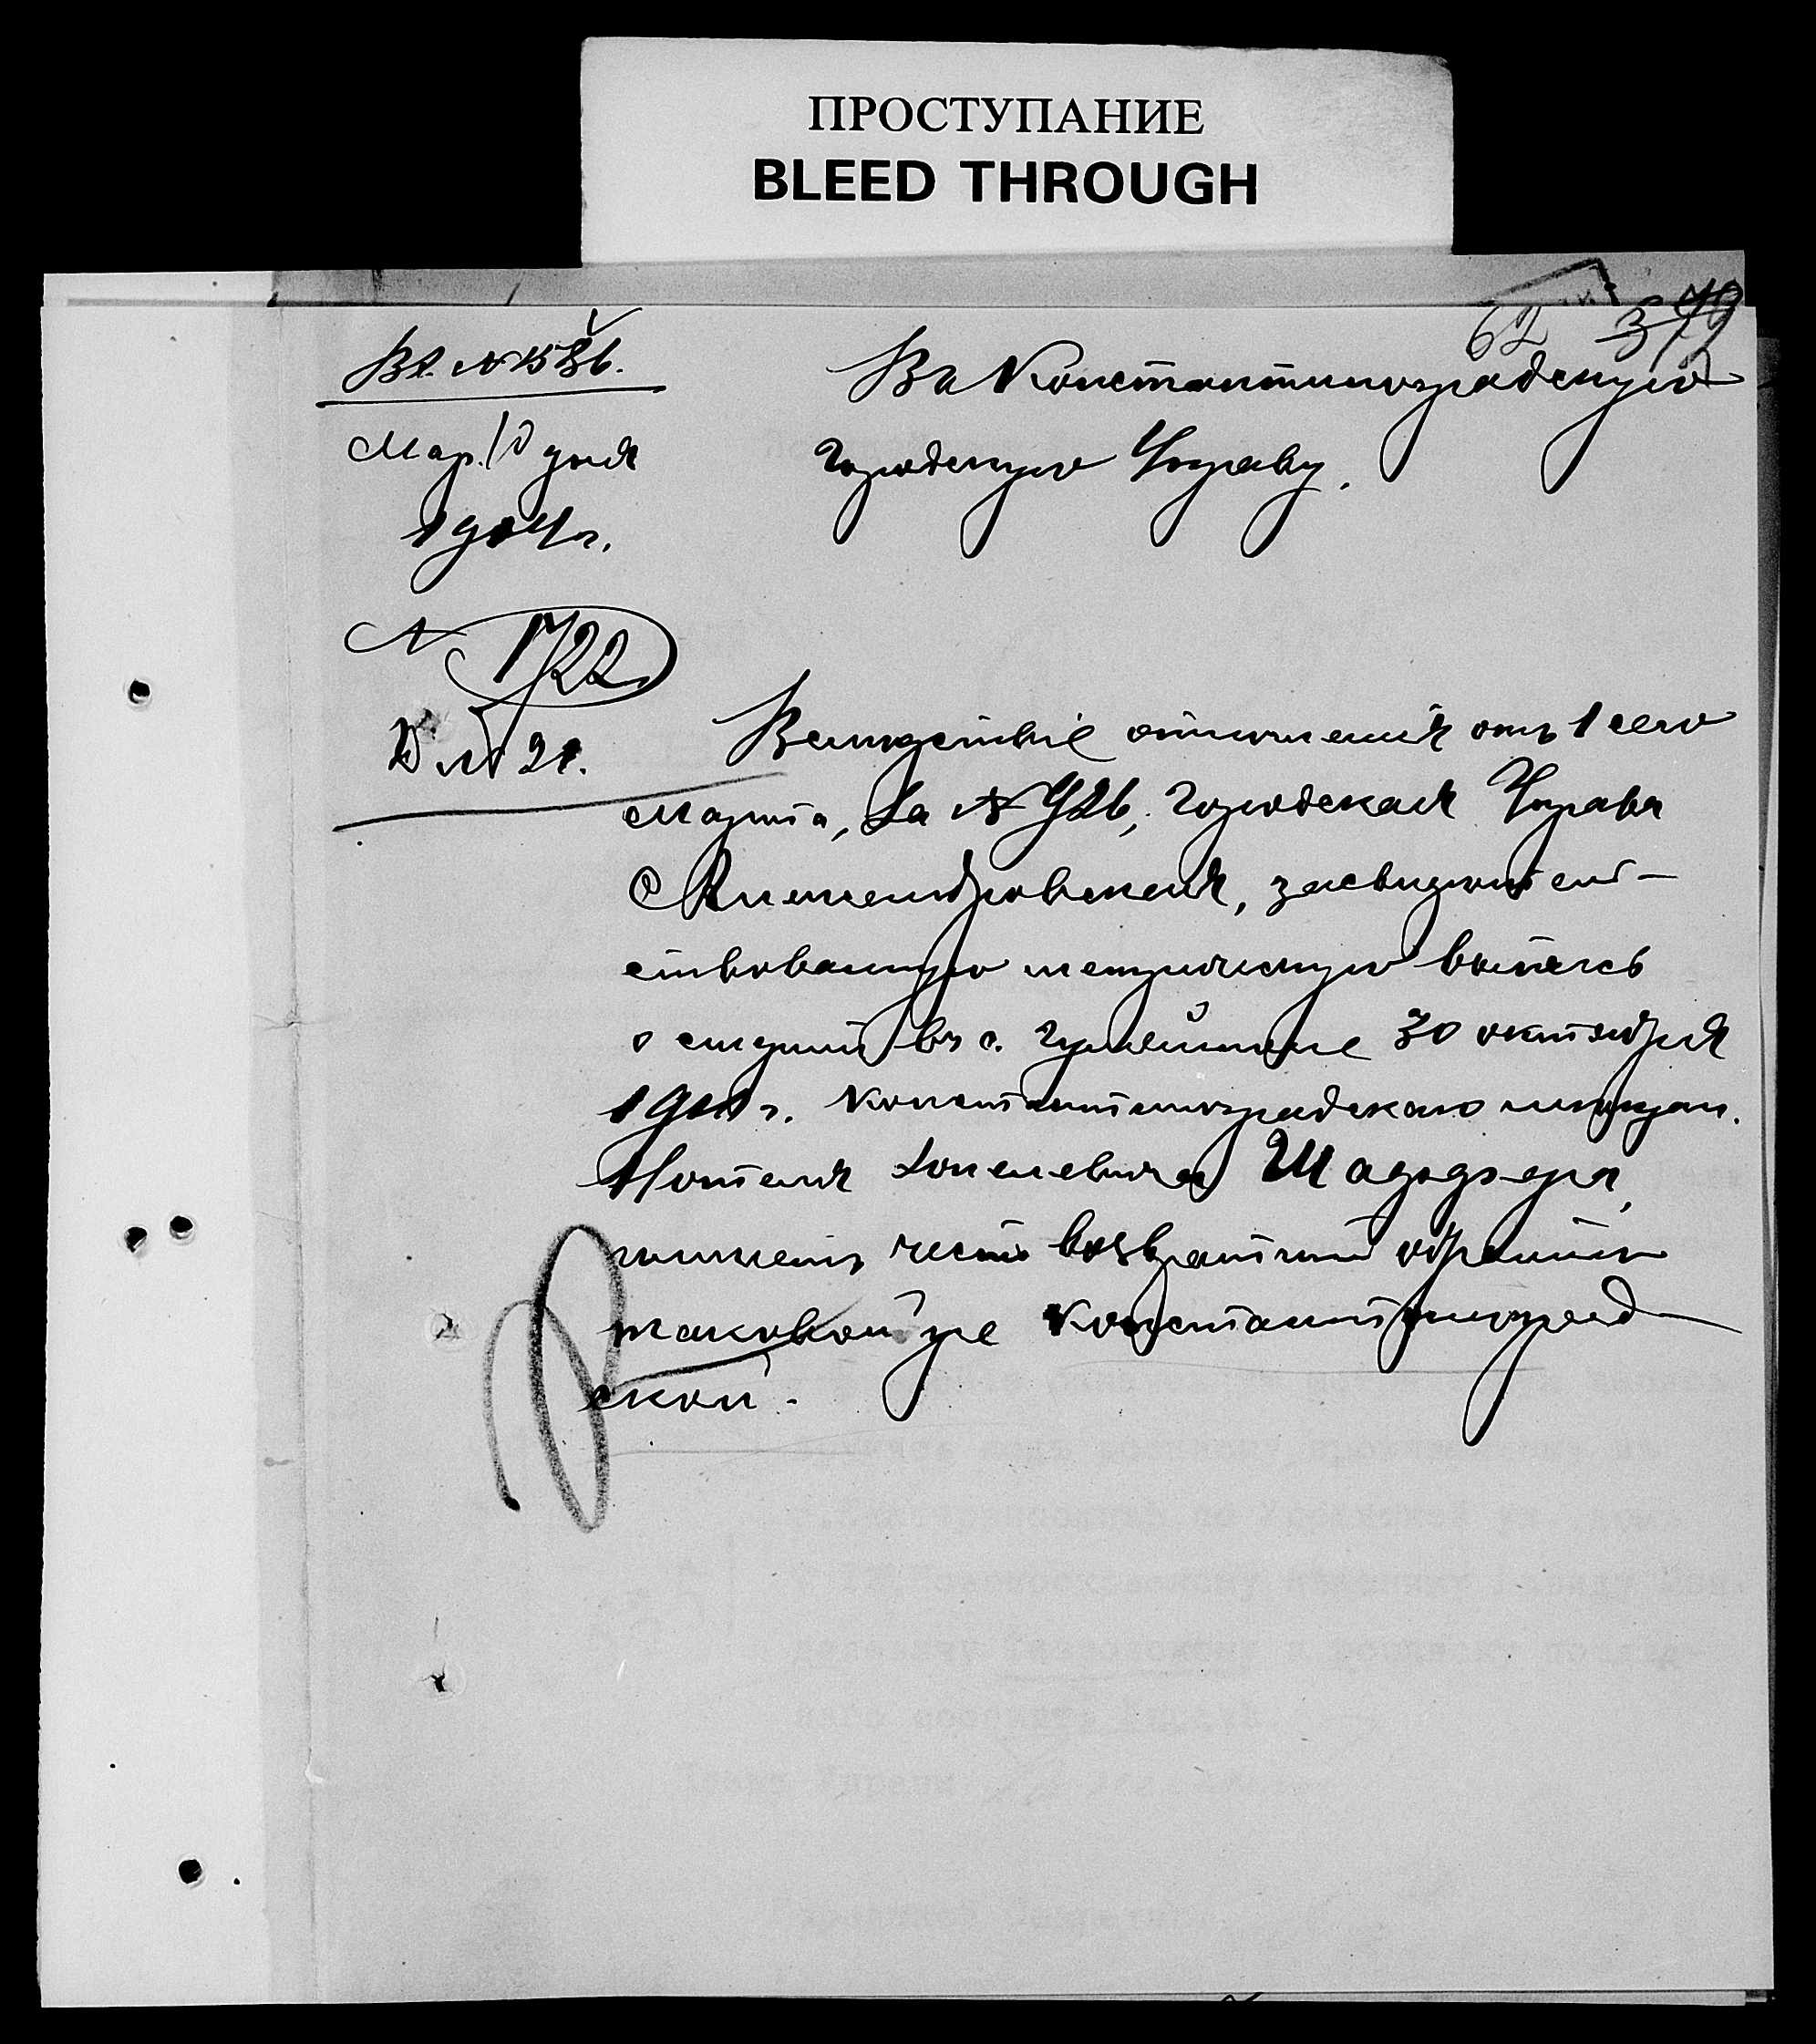 ПРОСТУПАНИЕ
BLEED THROUGH
62 379
Вх. № 1586.
Мар. 10 дня
1904 г.
№ 1722
Д № 21.
Въ Константиноградскую
Городскую Управу.
Вслѣдствіе отношенія отъ 1 сего
Марта, за № 926, Городская Управа
Александровская, засвидѣтель-
ствованную метрическую выпись
о смерти въ с. 30 октября
Константиноградскаго мѣщан.
имѣетъ честь возвратить обратно
таковой же Константиноград-
ской.